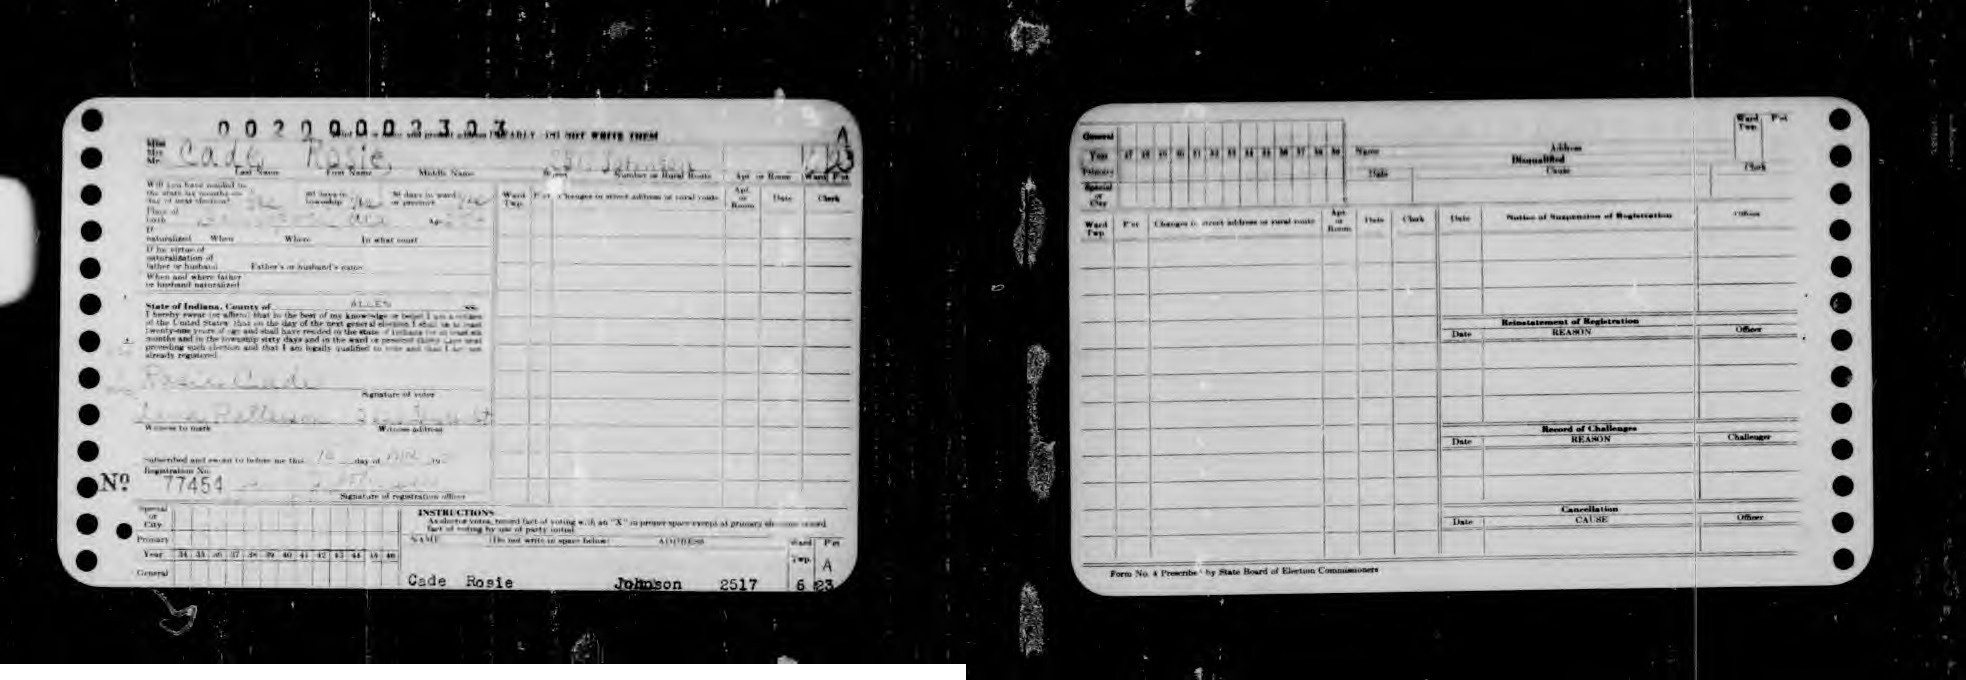 00200002303
PLEASE READ DO NOT WRITE THEM
Miss
Mrs
Mr. Cade Rosie Johnson A
Last Name First Name Middle Name Number or Rural Route Apt. or Room Ward P'ct
Will you have resided in
the state six months on 60 days in 30 days in ward
day of next election? Yes township Yes or precinct Yes
Place of
birth Age
If
naturalized When Where In what court
If by virtue of
naturalization of
father or husband Father's or husband's name
When and where father
or husband naturalized
State of Indiana, County of ALLEN ss.
I hereby swear (or affirm) that to the best of my knowledge or belief I am a citizen
of the United States; that on the day of the next general election I shall be at least
twenty-one years of age and shall have resided in the state of Indiana for at least six
months and in the township sixty days and in the ward or precinct thirty days next
preceding such election and that I am legally qualified to vote and that I am not
already registered
Rosie Cade
Signature of voter
Lena Patterson
Witness to mark Witness address
Subscribed and sworn to before me this day of 19
Registration No.
No 77454
Signature of registration officer
Ward Twp. P'ct Changes in street address or rural route Apt. or Room Date Clerk
Special
or
City
Primary
Year 34 35 36 37 38 39 40 41 42 43 44 45 46
General
INSTRUCTIONS
As elector votes, record fact of voting with an "X" in proper space except at primary elections record
fact of voting by use of party initial
NAME (Do not write in space below) ADDRESS Ward P'ct
Twp. A
Cade Rosie Johnson 2517 6 23
General
Year 47 48 49 50 51 52 53 54 55 56 57 58 59
Primary
Special
or
City
Name Address
Disqualified
Date Cause Clerk
Ward
Twp. P'ct
Ward Twp. P'ct Changes in street address or rural route Apt. or Room Date Clerk
Date Notice of Suspension of Registration Officer
Reinstatement of Registration
Date REASON Officer
Record of Challenges
Date REASON Challenger
Cancellation
Date CAUSE Officer
Form No. 4 Prescribed by State Board of Election Commissioners